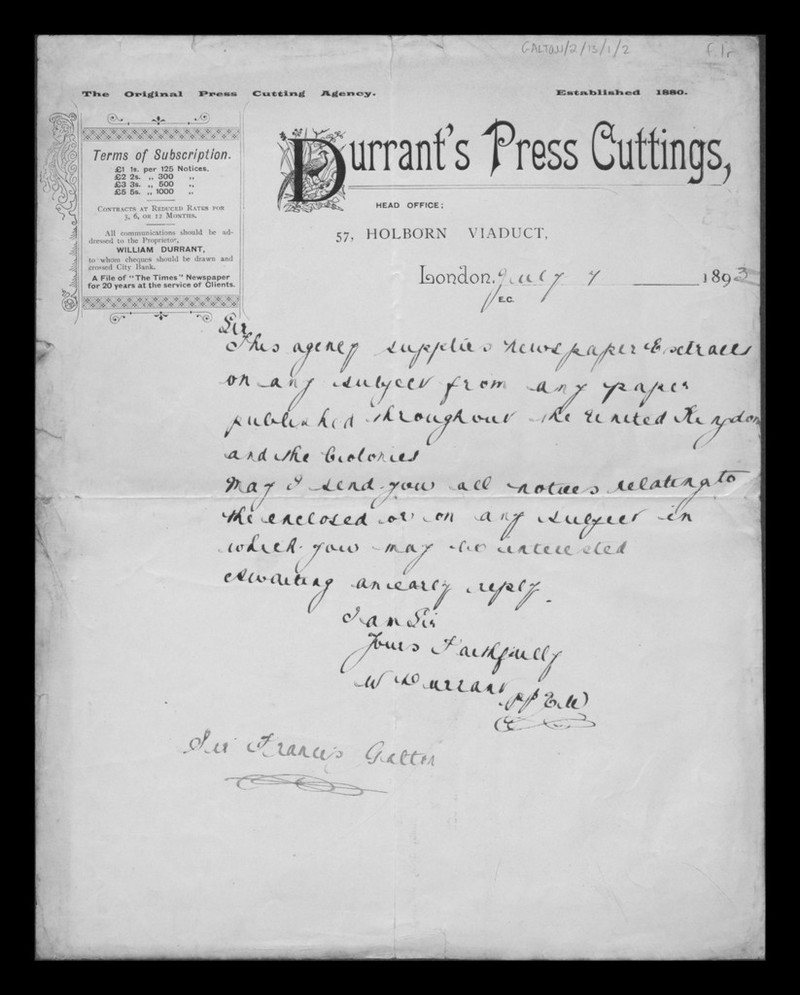 GALTON/2/13/1/2 f 1r
The Original Press Cutting Agency. Established 1880.
Terms of Subscription.
£1 1s. per 125 Notices.
£2 2s. „ 300 „
£3 3s. „ 500 „
£5 5s. „ 1000 „
Contracts at Reduced Rates for
3, 6, or 12 Months.
All communications should be ad-
dressed to the Proprietor,
WILLIAM DURRANT,
to whom cheques should be drawn and
crossed City Bank.
A File of "The Times" Newspaper
for 20 years at the service of Clients.
Durrant's Press Cuttings,
HEAD OFFICE;
57, HOLBORN VIADUCT,
London, July 7 1893
E.C.
Sir
This agency supplies Newspaper Extracts
on any subject from any paper
published throughout the United Kingdom
and the Colonies
May I send you all notices relating to
the enclosed or on any subject in
which you may be interested
Awaiting an early reply
I am Sir
Yours Faithfully
W Durrant
pp E.W
Sir Francis Galton